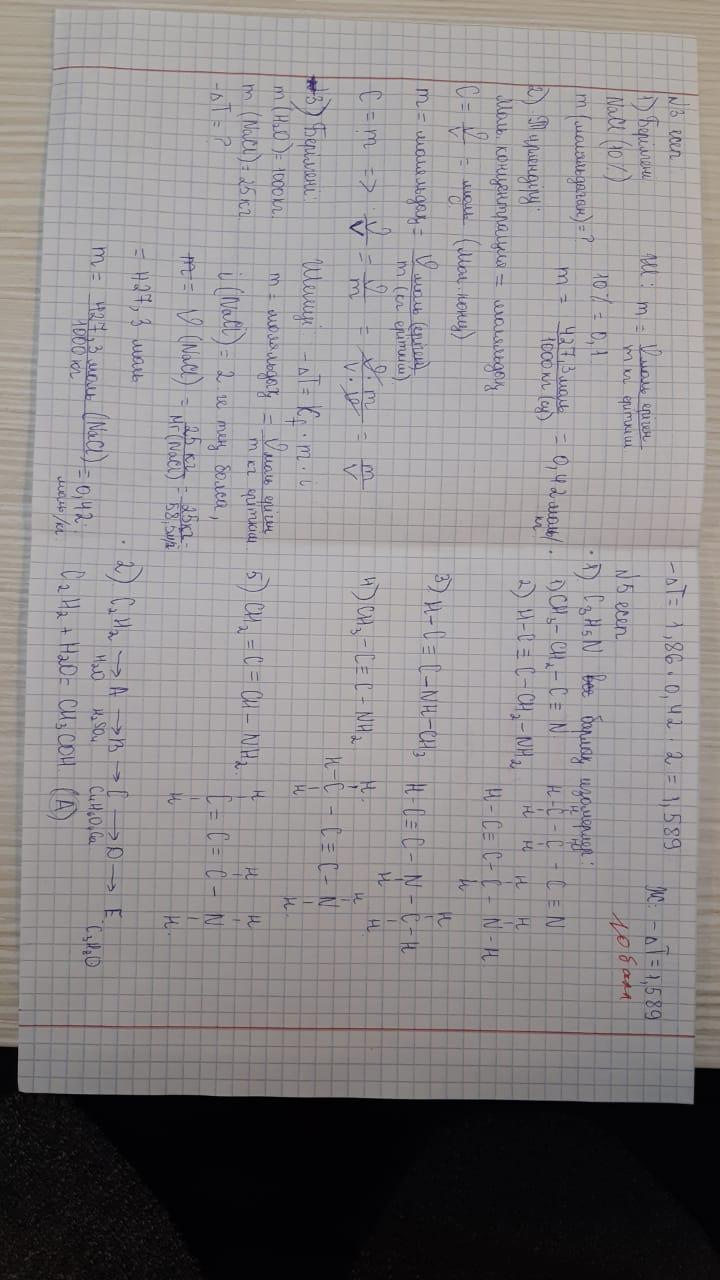 №3 есеп
1) Берілгені
NaCl (10%)
m (моляльдағы) = ?
Ш: m = ν моль еріген / m кг еріткіш
10% = 0,1
m = 427,3 моль / 1000 кг (су) = 0,42 моль/кг.
2) Түсіндіру:
Моль концентрация = моляльдық
C = ν/V = моль/С (мол. конц)
m = моляльдық = ν моль (еріген) / m (кг еріткіш)
C = m => ν/V = ν/m = ν·m / V·ν = m/V
3) Берілгені:
m (H2O) = 1000 кг.
m (NaCl) = 25 кг
-ΔT = ?
Шешуі: -ΔT = Kf · m · i
m = моляльдық = ν моль еріген / m кг еріткіш
i (NaCl) = 2 ге тең болса,
m = ν (NaCl) = 25 кг / Mr (NaCl) = 25 кг / 58,5
= 427,3 моль
m = 427,3 моль (NaCl) / 1000 кг = 0,42 моль/кг.
-ΔT = 1,86 · 0,42 · 2 = 1,589
Ж: -ΔT = 1,589
10 балл
№5 есеп
1) C3H5N барлық изомерлер:
1) CH3-CH2-C≡N
H-C-C-C≡N
2) H-C≡C-CH2-NH2
H-C≡C-C-N-H
3) H-C≡C-NH-CH3
H-C≡C-N-C-H
4) CH3-C≡C-NH2
H-C-C≡C-N
5) CH2=C=CH-NH2.
C=C=C-N
2) C2H2 → A → B → C → D → E
H2O H2SO4 C4H6O4Ca C3H8O
C2H2 + H2O = CH3COH (A)